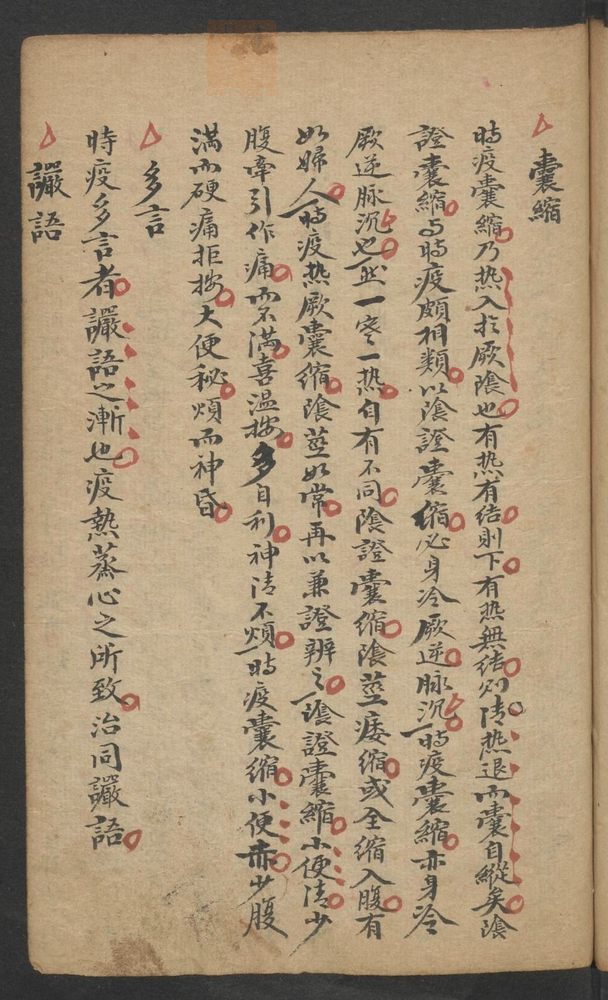 囊縮
時疫囊縮乃热入於厥隂也有热有结則下有热無结则清热退而囊自縱矣隂
證囊縮与時疫頗相類以隂證囊縮必身冷厥逆脉沉時疫囊縮亦身冷
厥逆脉沉也然一寒一热自有不同隂證囊缩隂莖痿缩或全缩入腹有
如婦人時疫热厥囊缩隂莖如常再以兼證辨之隂證囊縮小便清少
腹牽引作痛而不满喜温按多自利神清不烦時疫囊缩小便赤少腹
满而硬痛拒按大便秘煩而神昏
多言
時疫多言者讝語之漸也疫熱蒸心之所致治同讝語
讝語